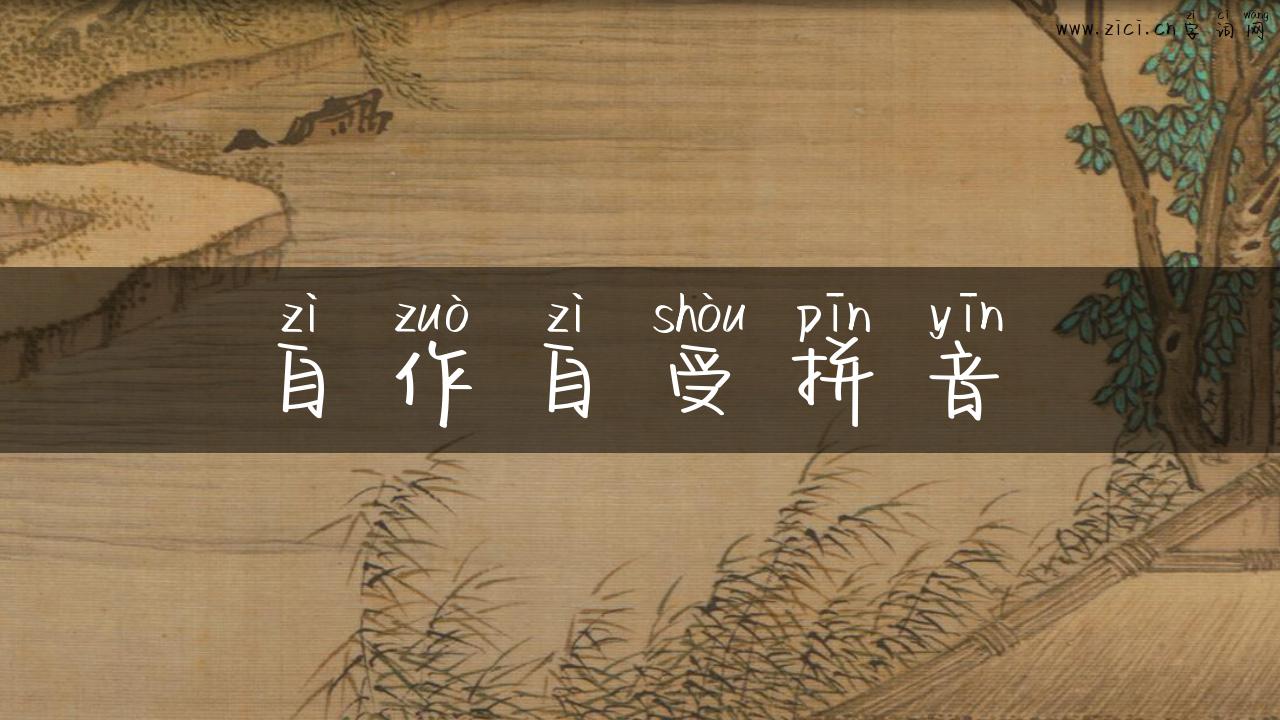 zì cí wǎng
www.zici.cn字词网
zì zuò zì shòu pīn yīn
自作自受拼音